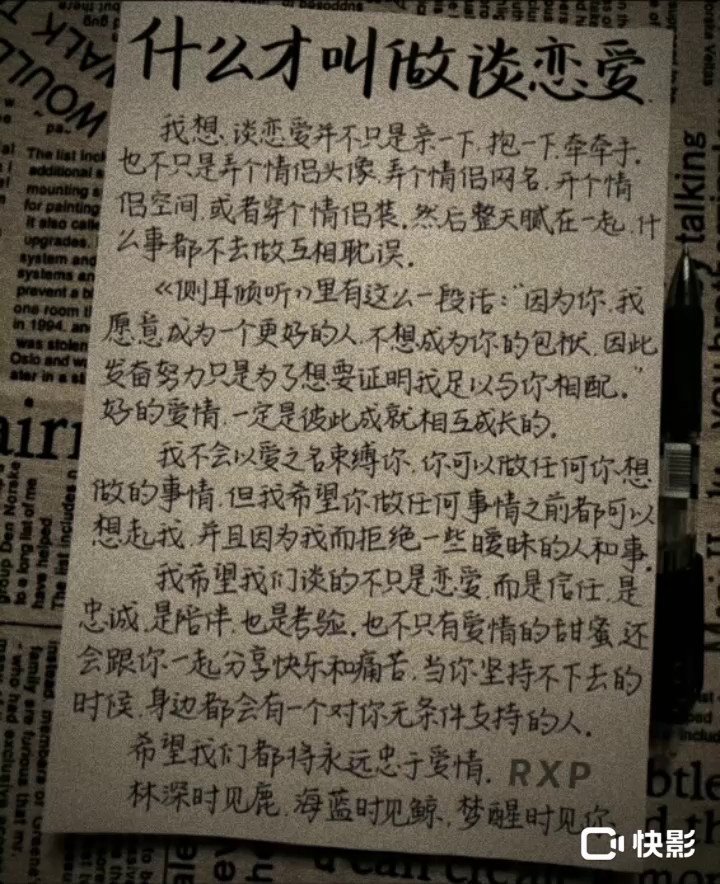 什么才叫做谈恋爱
我想,谈恋爱并不只是亲一下,抱一下,牵牵手,
也不只是弄个情侣头像,弄个情侣网名,开个情
侣空间,或者穿个情侣装,然后整天腻在一起,什
么事都不去做互相耽误。
《侧耳倾听》里有这么一段话:“因为你,我
愿意成为一个更好的人,不想成为你的包袱,因此
发奋努力只是为了想要证明我足以与你相配。”
好的爱情,一定是彼此成就相互成长的。
我不会以爱之名束缚你,你可以做任何你想
做的事情,但我希望你做任何事情之前都可以
想起我,并且因为我而拒绝一些暧昧的人和事。
我希望我们谈的不只是恋爱,而是信任,是
忠诚,是陪伴,也是考验。也不只有爱情的甜蜜,还
会跟你一起分享快乐和痛苦,当你坚持不下去的
时候,身边都会有一个对你无条件支持的人。
希望我们都将永远忠于爱情。
林深时见鹿,海蓝时见鲸,梦醒时见你
RXP
快影
WOULD
WALK T
talking
The list incl
additional s
mounting s
for painting
it also calle
upgrades.
system and
systems an
prevent a b
one room t
in 1994, an
was stolen
Oslo and w
ater in a st
airi
group Den Norske
to a long list of me
have helped
The list includes n
instead members or
family are furious
- who had exclusive
btle
d th